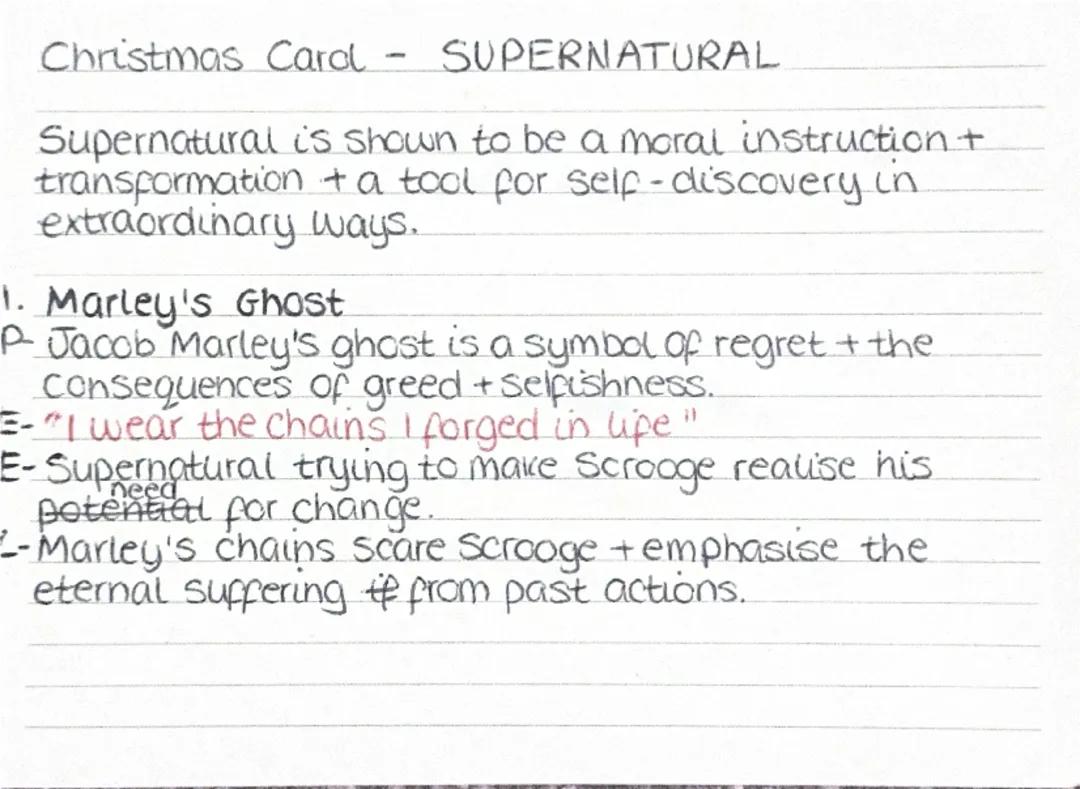 Christmas Carol - SUPERNATURAL
Supernatural is shown to be a moral instruction +
transformation + a tool for self-discovery in
extraordinary ways.
1. Marley's Ghost
P- Jacob Marley's ghost is a symbol of regret + the
consequences of greed + selfishness.
E- "I wear the chains I forged in life"
E- Supernatural trying to make Scrooge realise his
need
potential for change.
L- Marley's chains scare Scrooge + emphasise the
eternal suffering if from past actions.